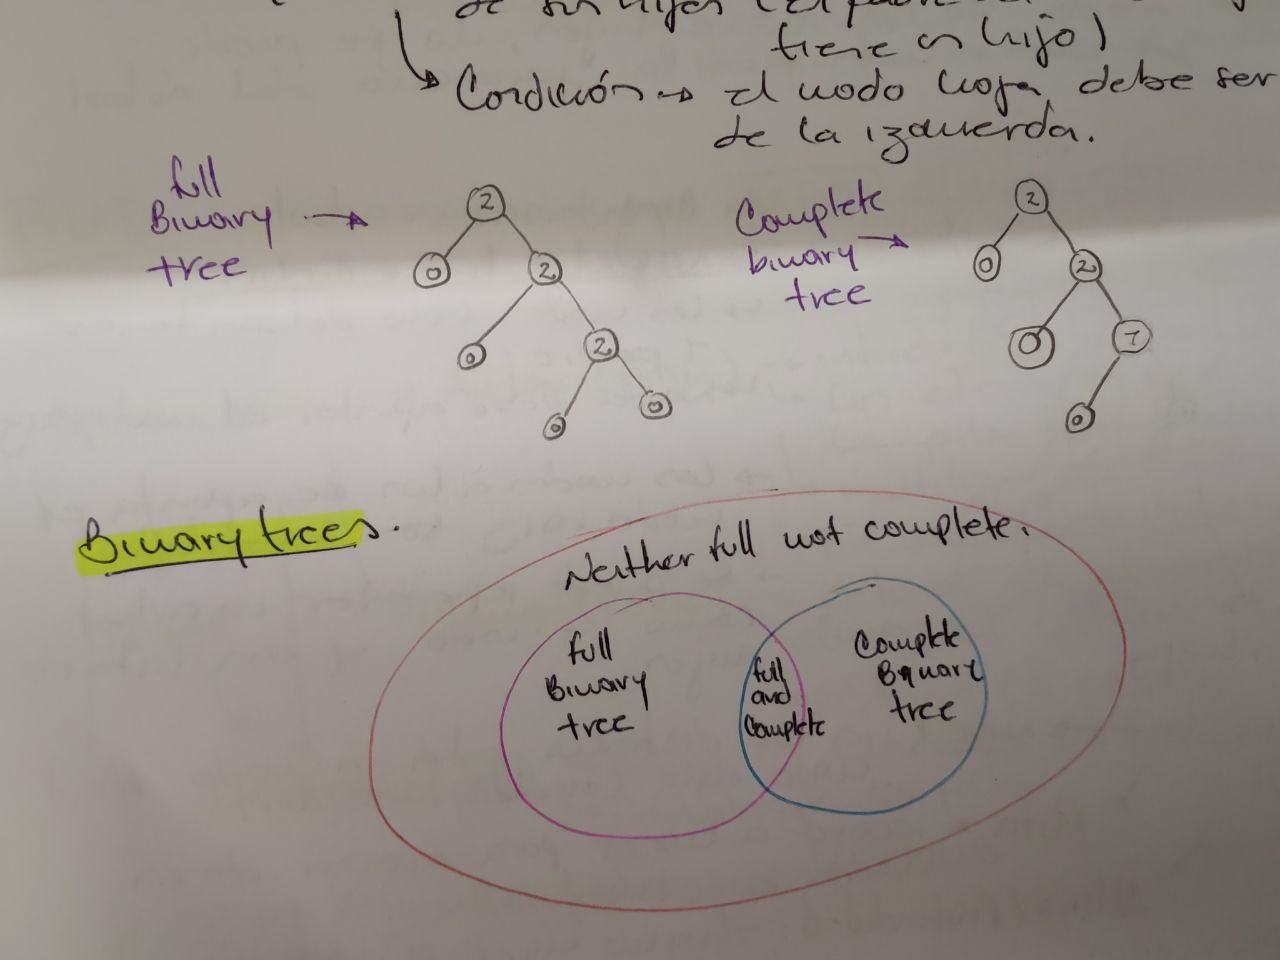 de sus hijos (el
tiene un hijo)
Condición → El nodo hoja debe ser
de la izquierda.
full
Binary
tree
→
2
0
2
0
2
0
0
Complete
binary
tree
→
2
0
2
0
1
0
Binary trees.
Neither full not complete.
full
Binary
tree
full
and
Complete
Complete
Binary
tree